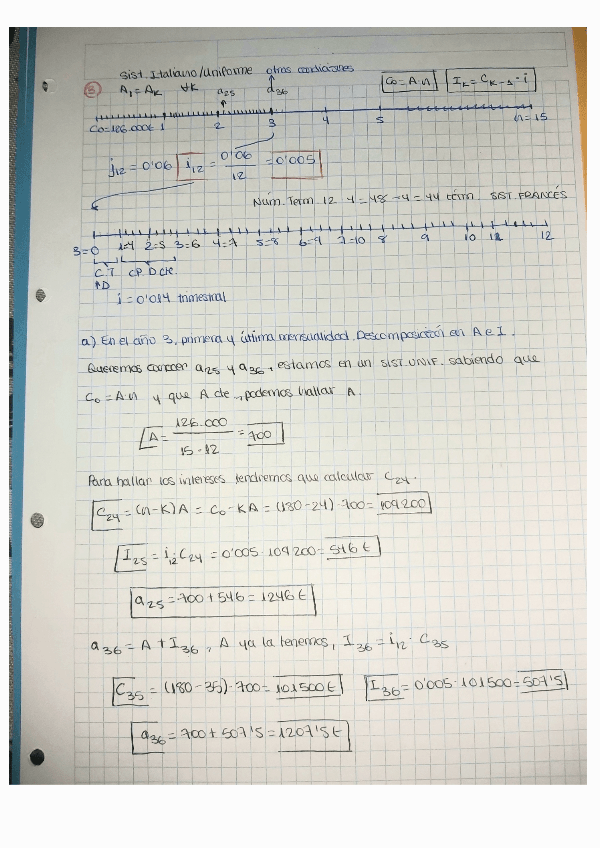 Sist. Italiano/Uniforme otras condiciones
8 A₁ = Aₖ ∀k a₂₅ a₃₆ C₀ = A·n Iₖ = Cₖ₋₁·i
C₀=126.000€ 1 2 3 4 5 n=15
j₁₂ = 0'06 i₁₂ = 0'06/12 = 0'005
Núm. Term. 12·4 = 48 - 4 = 44 térm. SIST. FRANCÉS
3=0 1=4 2=5 3=6 4=7 5=8 6=9 7=10 8 9 10 11 12
C.T. CP. D cte.
i = 0'014 trimestral
a) En el año 3, primera y última mensualidad. Descomposición en A e I.
Queremos conocer a₂₅ y a₃₆, estamos en un SIST. UNIF. sabiendo que
C₀ = A·n y que A cte, podemos hallar A.
A = 126.000/15·12 = 700
Para hallar los intereses tendremos que calcular C₂₄.
C₂₄ = (n-K)A = C₀ - KA = (180-24)·700 = 109200
I₂₅ = i₁₂ C₂₄ = 0'005·109200 = 546€
a₂₅ = 700 + 546 = 1246€
a₃₆ = A + I₃₆, A ya la tenemos, I₃₆ = i₁₂·C₃₅
C₃₅ = (180-35)·700 = 101500€ I₃₆ = 0'005·101500 = 507'5
a₃₆ = 700 + 507'5 = 1207'5€